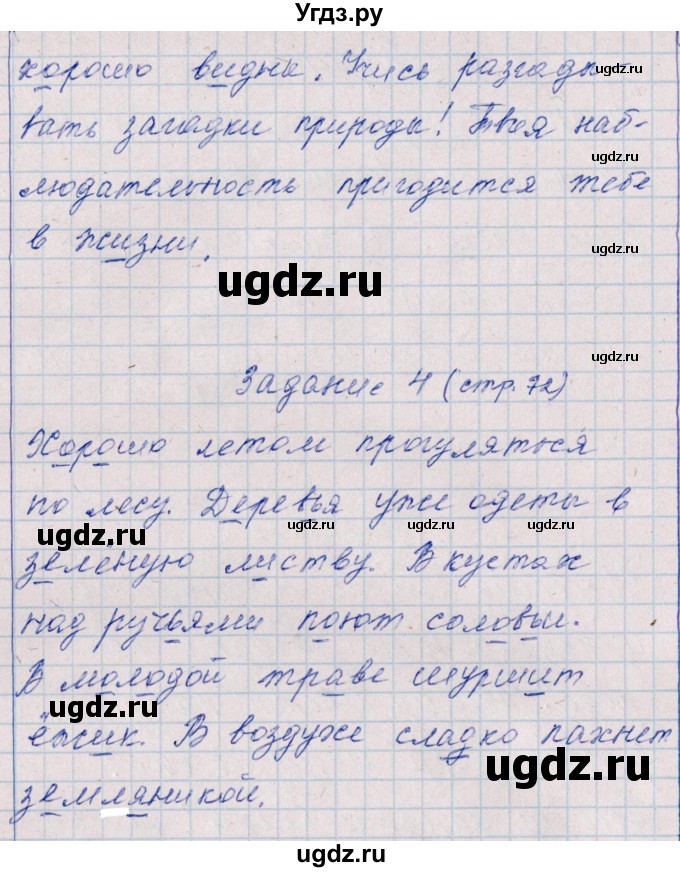 Угдз.ру
хорошо видны. Учись разгады-
ugdz.ru
вать загадки природы! Твоя наб-
ugdz.ru
людательность пригодится тебе
в жизни.
ugdz.ru
ugdz.ru
ugdz.ru
Задание 4 (стр. 72)
Хорошо летом прогуляться
ugdz.ru
по лесу. Деревья уже одеты в
ugdz.ru ugdz.ru ugdz.ru
зелёную листву. В кустах
над ручьями поют соловьи.
В молодой траве шуршит
ёжик. В воздухе сладко пахнет
ugdz.ru
земляникой.
ugdz.ru